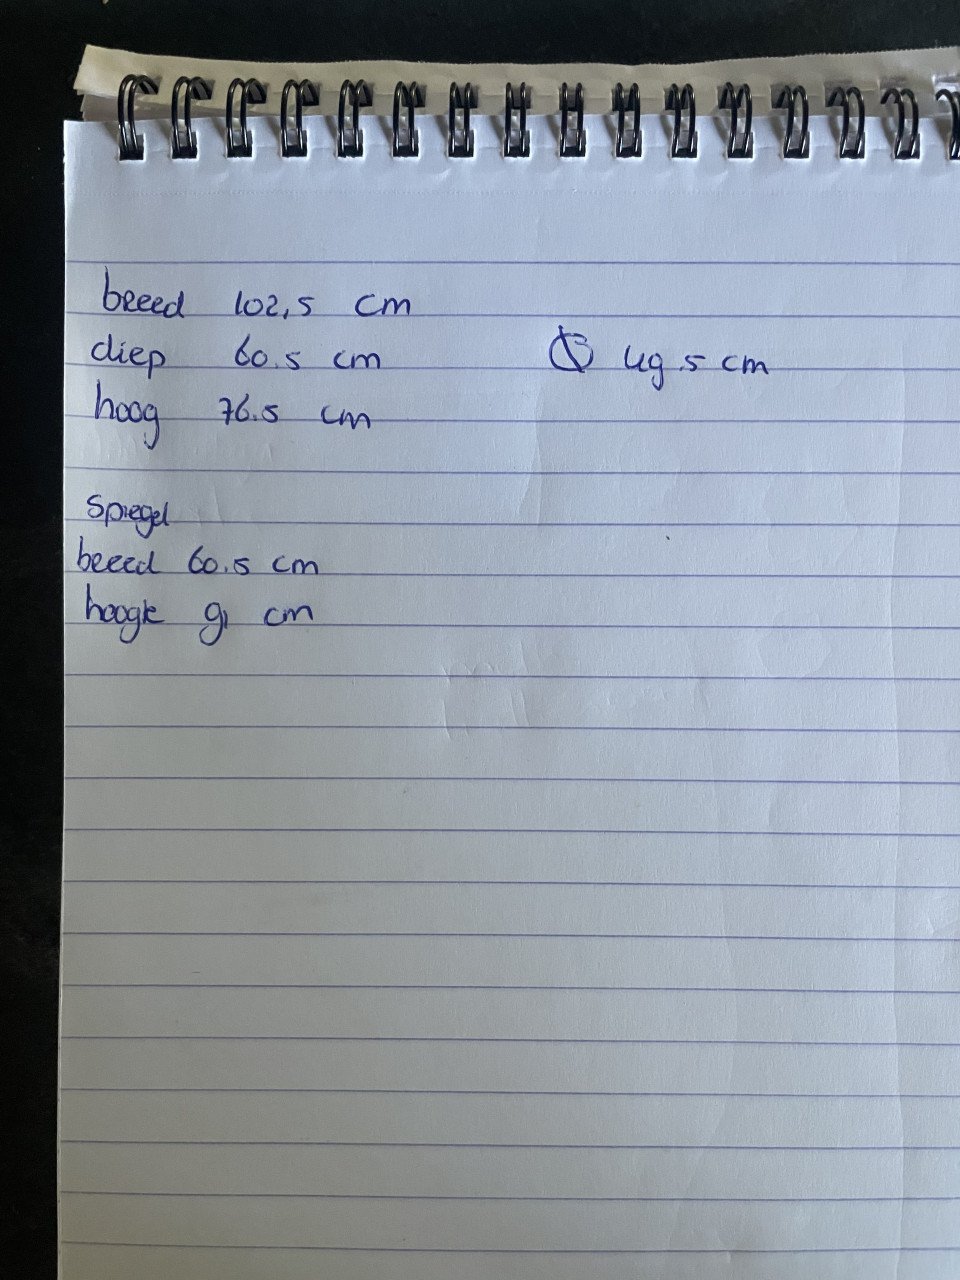 breed 102,5 cm
diep 60.5 cm ⦰ 49.5 cm
hoog 76.5 cm
Spiegel
breed 60.5 cm
hoogte 91 cm